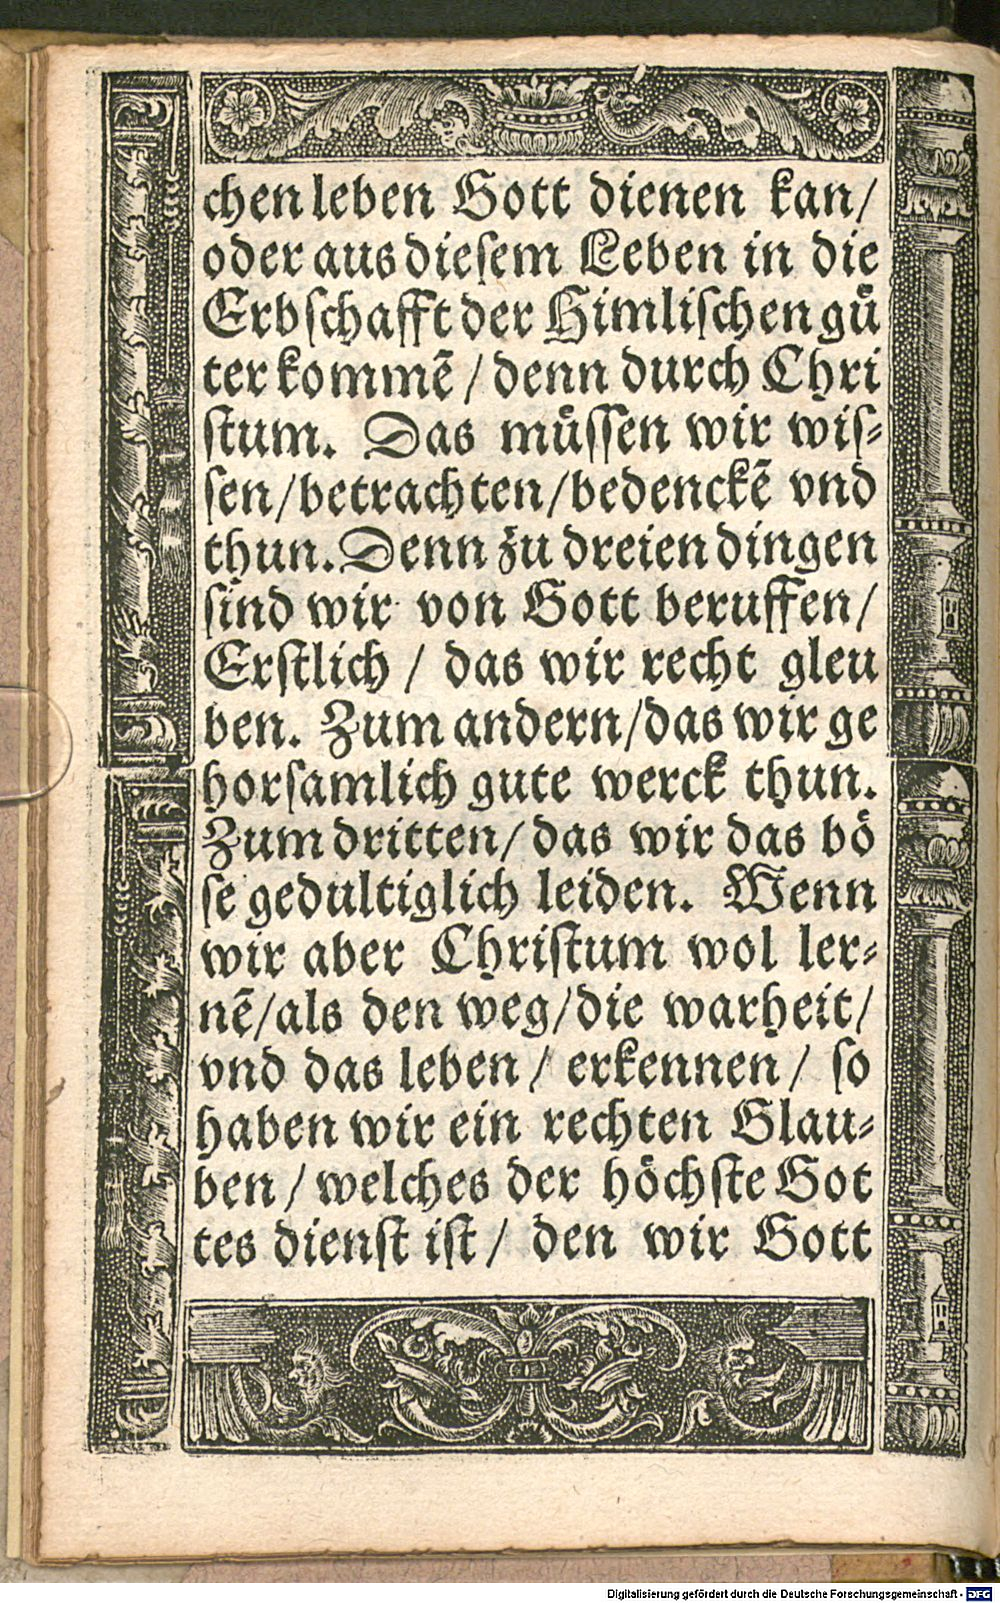 chen leben Gott dienen kan/
oder aus dieſem Leben in die
Erbſchafft der Himliſchen guͤ
ter kommẽ / denn durch Chri
ſtum. Das muͤſſen wir wiſ⸗
ſen/betrachten/bedenckẽ vnd
thun. Denn zu dreien dingen
ſind wir von Gott beruffen/
Erſtlich / das wir recht gleu
ben. Zum andern/das wir ge
horſamlich gute werck thun.
Zum dritten/ das wir das boͤ
ſe gedultiglich leiden. Wenn
wir aber Chriſtum wol ler⸗
nẽ/als den weg/die warheit/
vnd das leben/ erkennen/ ſo
haben wir ein rechten Glau⸗
ben / welches der hoͤchſte Got
tes dienſt iſt/ den wir Gott
Digitalisierung gefördert durch die Deutsche Forschungsgemeinschaft - DFG